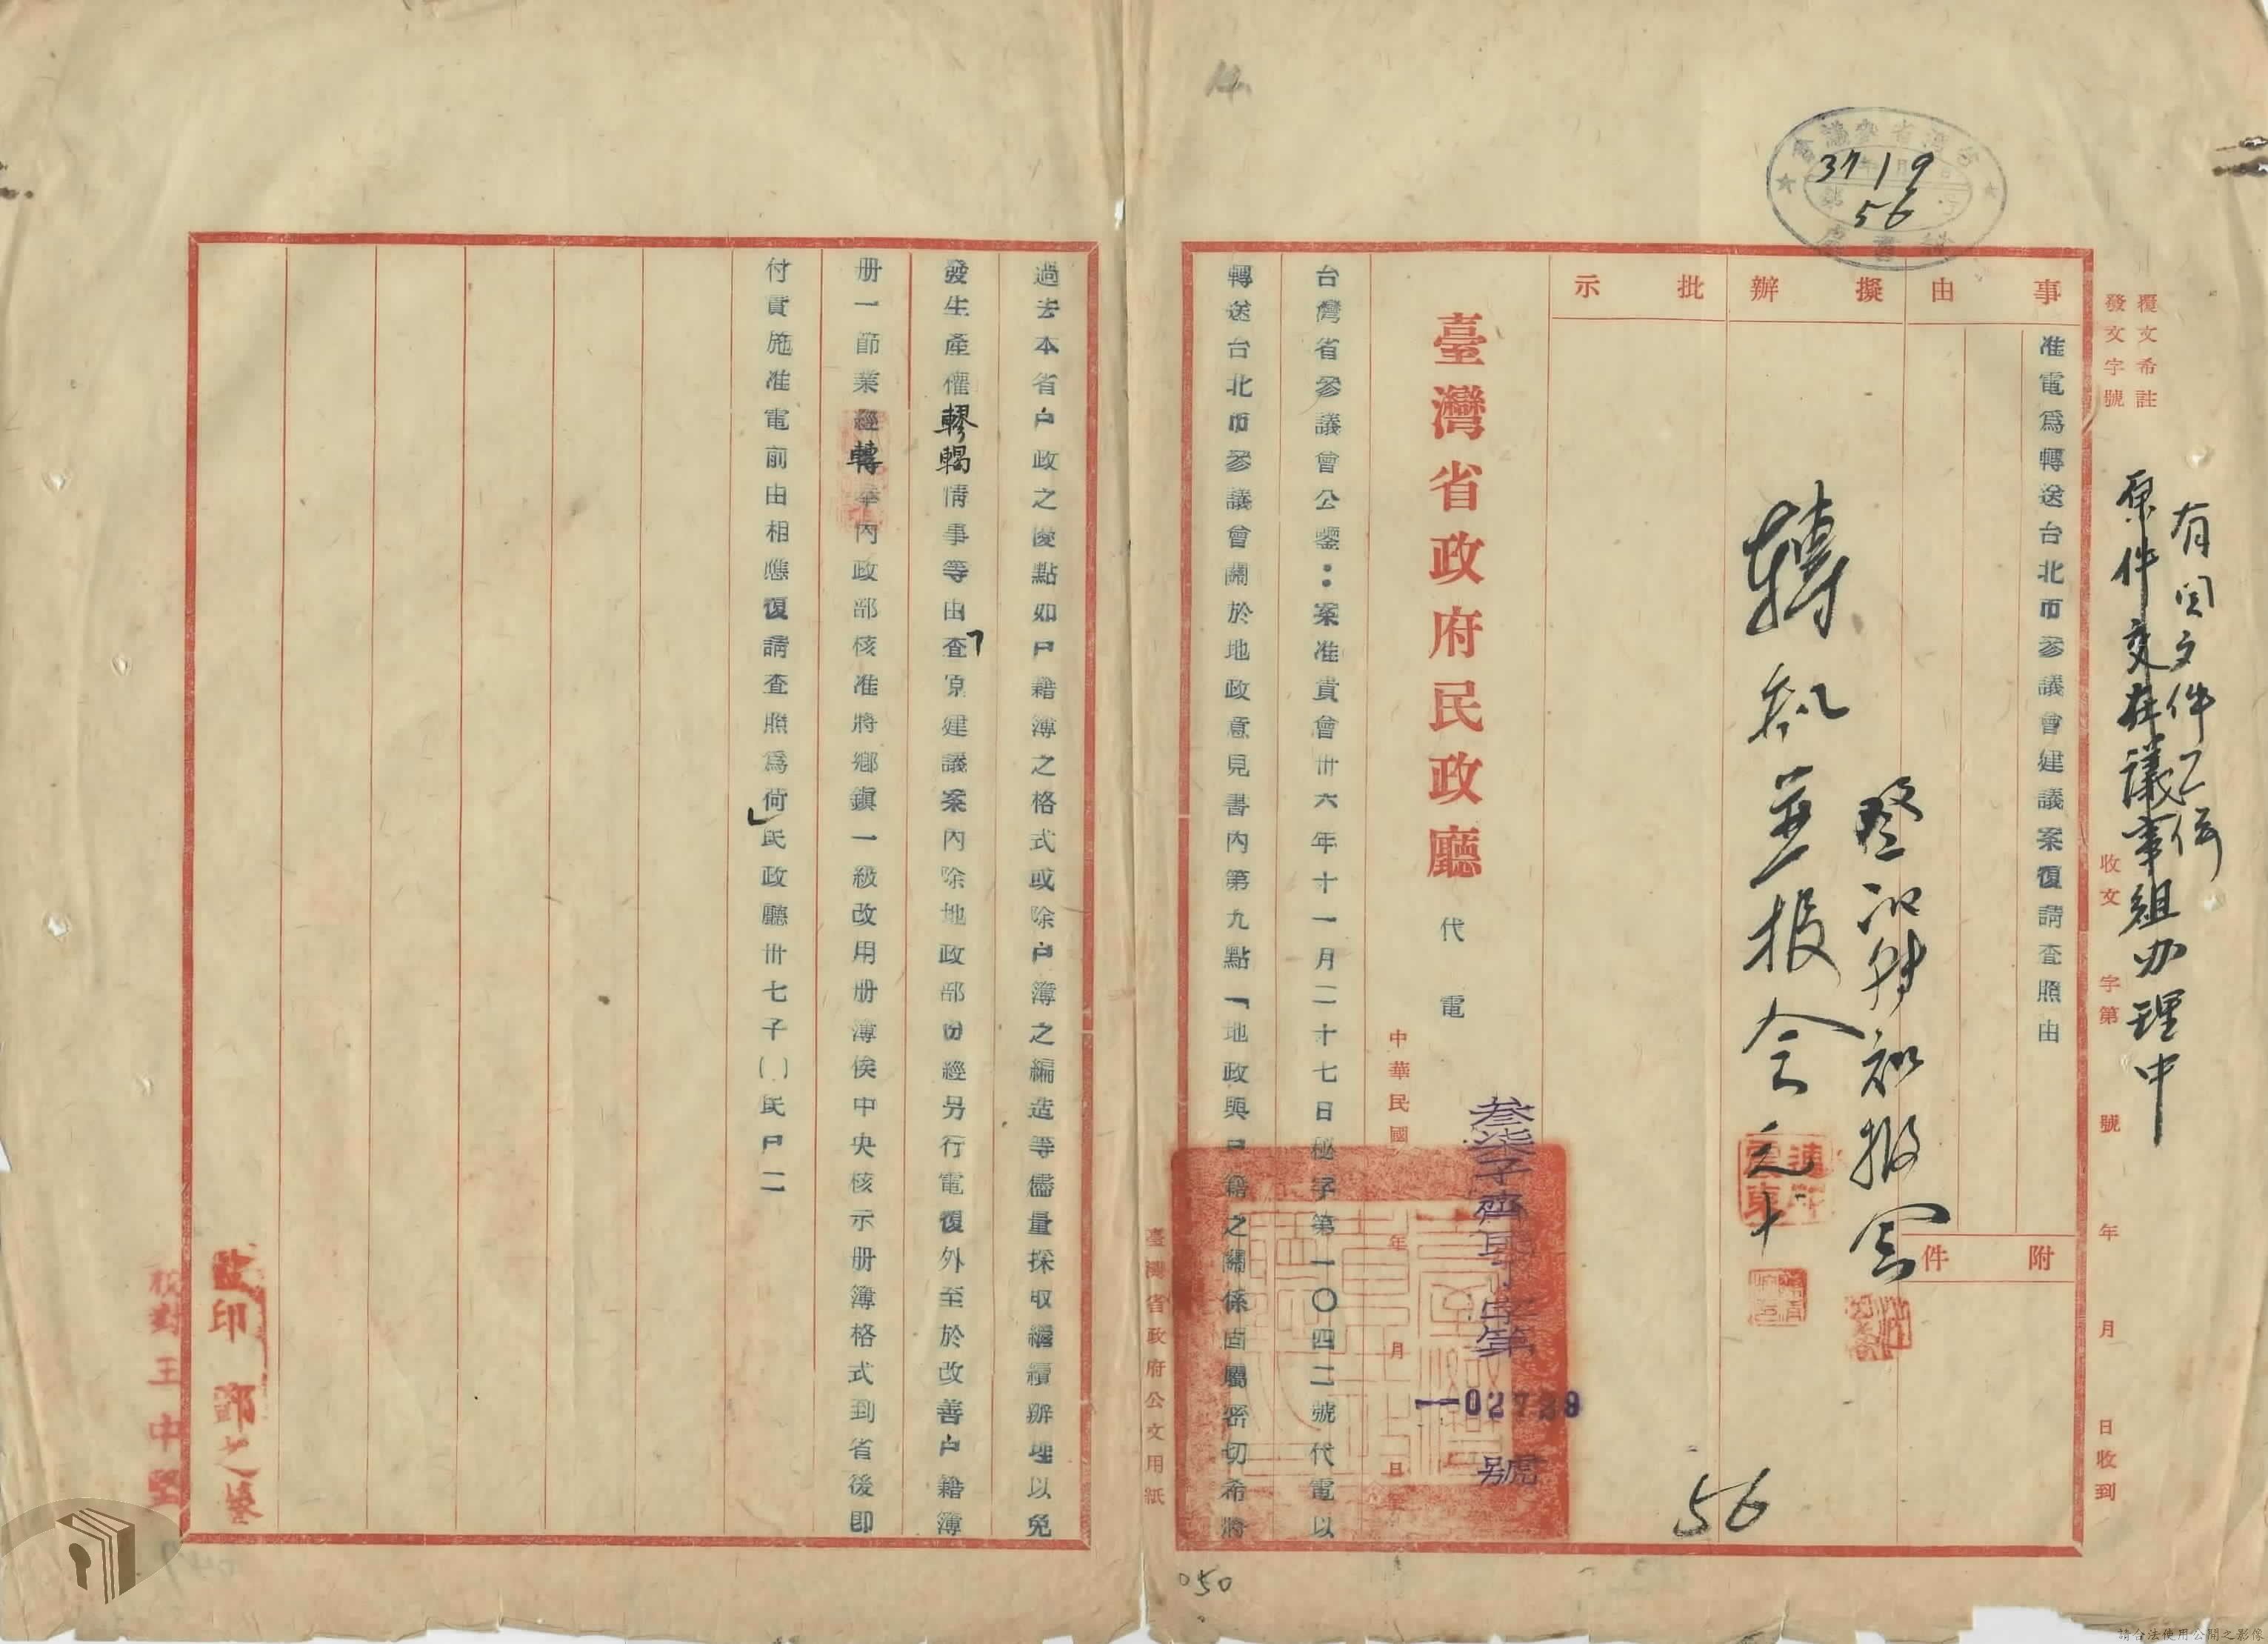 37 1 9
56
覆文希註
發文字號
收文 字第 號 年 月 日收到
有関文件
原件交 議事組办理中
事由
准電爲轉送台北市參議會建議案復請查照由
附件
擬辦
批示
轉知並报会
臺灣省政府民政廳
代電
中華民國 年 月 日
字第
02729
號
56
台灣省參議會公鑒：案准貴會卅六年十一月二十七日秘字第一〇四二號代電以
轉送台北市參議會關於地政意見書內第九點「地政與戶籍之關係固屬密切希將
臺灣省政府公文用紙
050
過去本省戶政之優點如戶籍簿之格式或除戶簿之編造等儘量採取繼續辦理以免
發生產權轇轕情事等由」查原建議案內除地政部份經另行電復外至於改善戶籍簿
册一節業經轉奉內政部核准將鄉鎮一級改用册簿俟中央核示册簿格式到省後即
付實施准電前由相應復請查照爲荷民政廳卅七子（ ）民戶二
監印
校對王中堅
請合法使用公開之影像